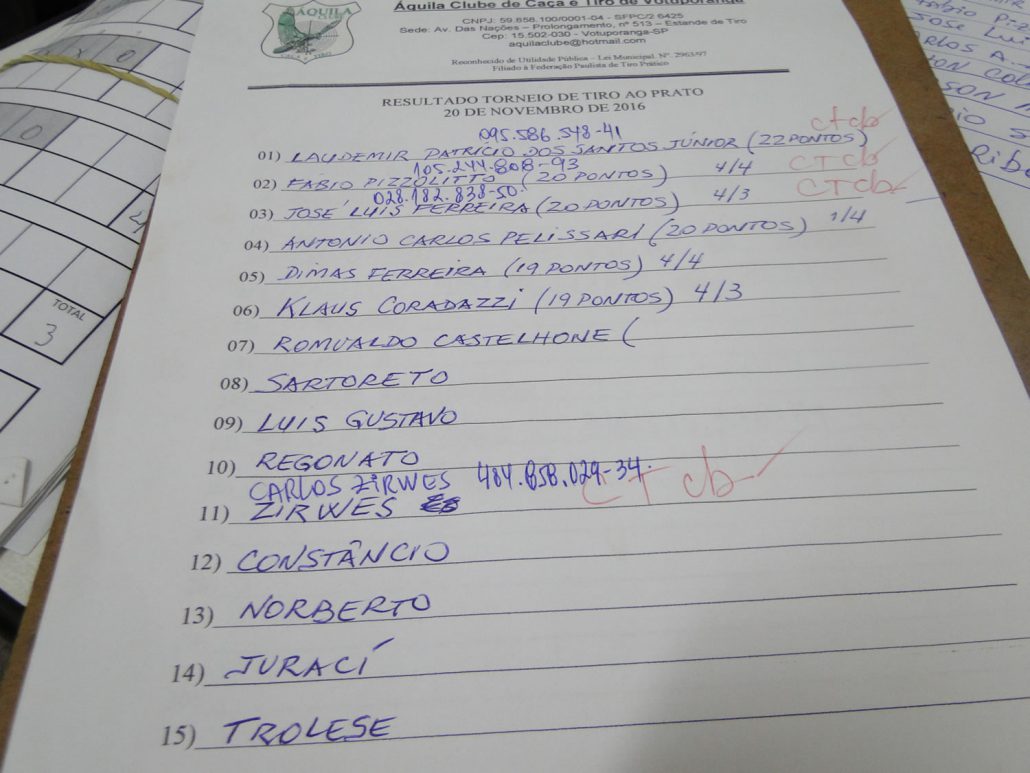 ÁQUILA
CLUBE
CAÇA e TIRO
Águila Clube de Caça e Tiro de Votuporanga
CNPJ: 59.658.100/0001-04 - SFPC/2 6425
Sede: Av. Das Nações – Prolongamento, nº 513 – Estande de Tiro
Cep: 15.502-030 - Votuporanga-SP
aquilaclube@hotmail.com
Reconhecido de Utilidade Pública – Lei Municipal Nº. 2963/97
Filiado à Federação Paulista de Tiro Prático
RESULTADO TORNEIO DE TIRO AO PRATO
20 DE NOVEMBRO DE 2016
095.586.548-41 ctcb
01) LAUDEMIR PATRÍCIO DOS SANTOS JÚNIOR (22 PONTOS)
105.244.808-93
02) FÁBIO PIZZOLITTO (20 PONTOS) 4/4 CTcb
028.182.838-50
03) JOSÉ LUIS FERREIRA (20 PONTOS) 4/3 CTcb
04) ANTONIO CARLOS PELISSARI (20 PONTOS) 1/4
05) DIMAS FERREIRA (19 PONTOS) 4/4
06) KLAUS CORADAZZI (19 PONTOS) 4/3
07) ROMUALDO CASTELHONE (
08) SARTORETO
09) LUIS GUSTAVO
10) REGONATO
CARLOS ZIRWES 484.858.029-34 CT cb
11) ZIRWES
12) CONSTÂNCIO
13) NORBERTO
14) JURACÍ
15) TROLESE
TOTAL
3